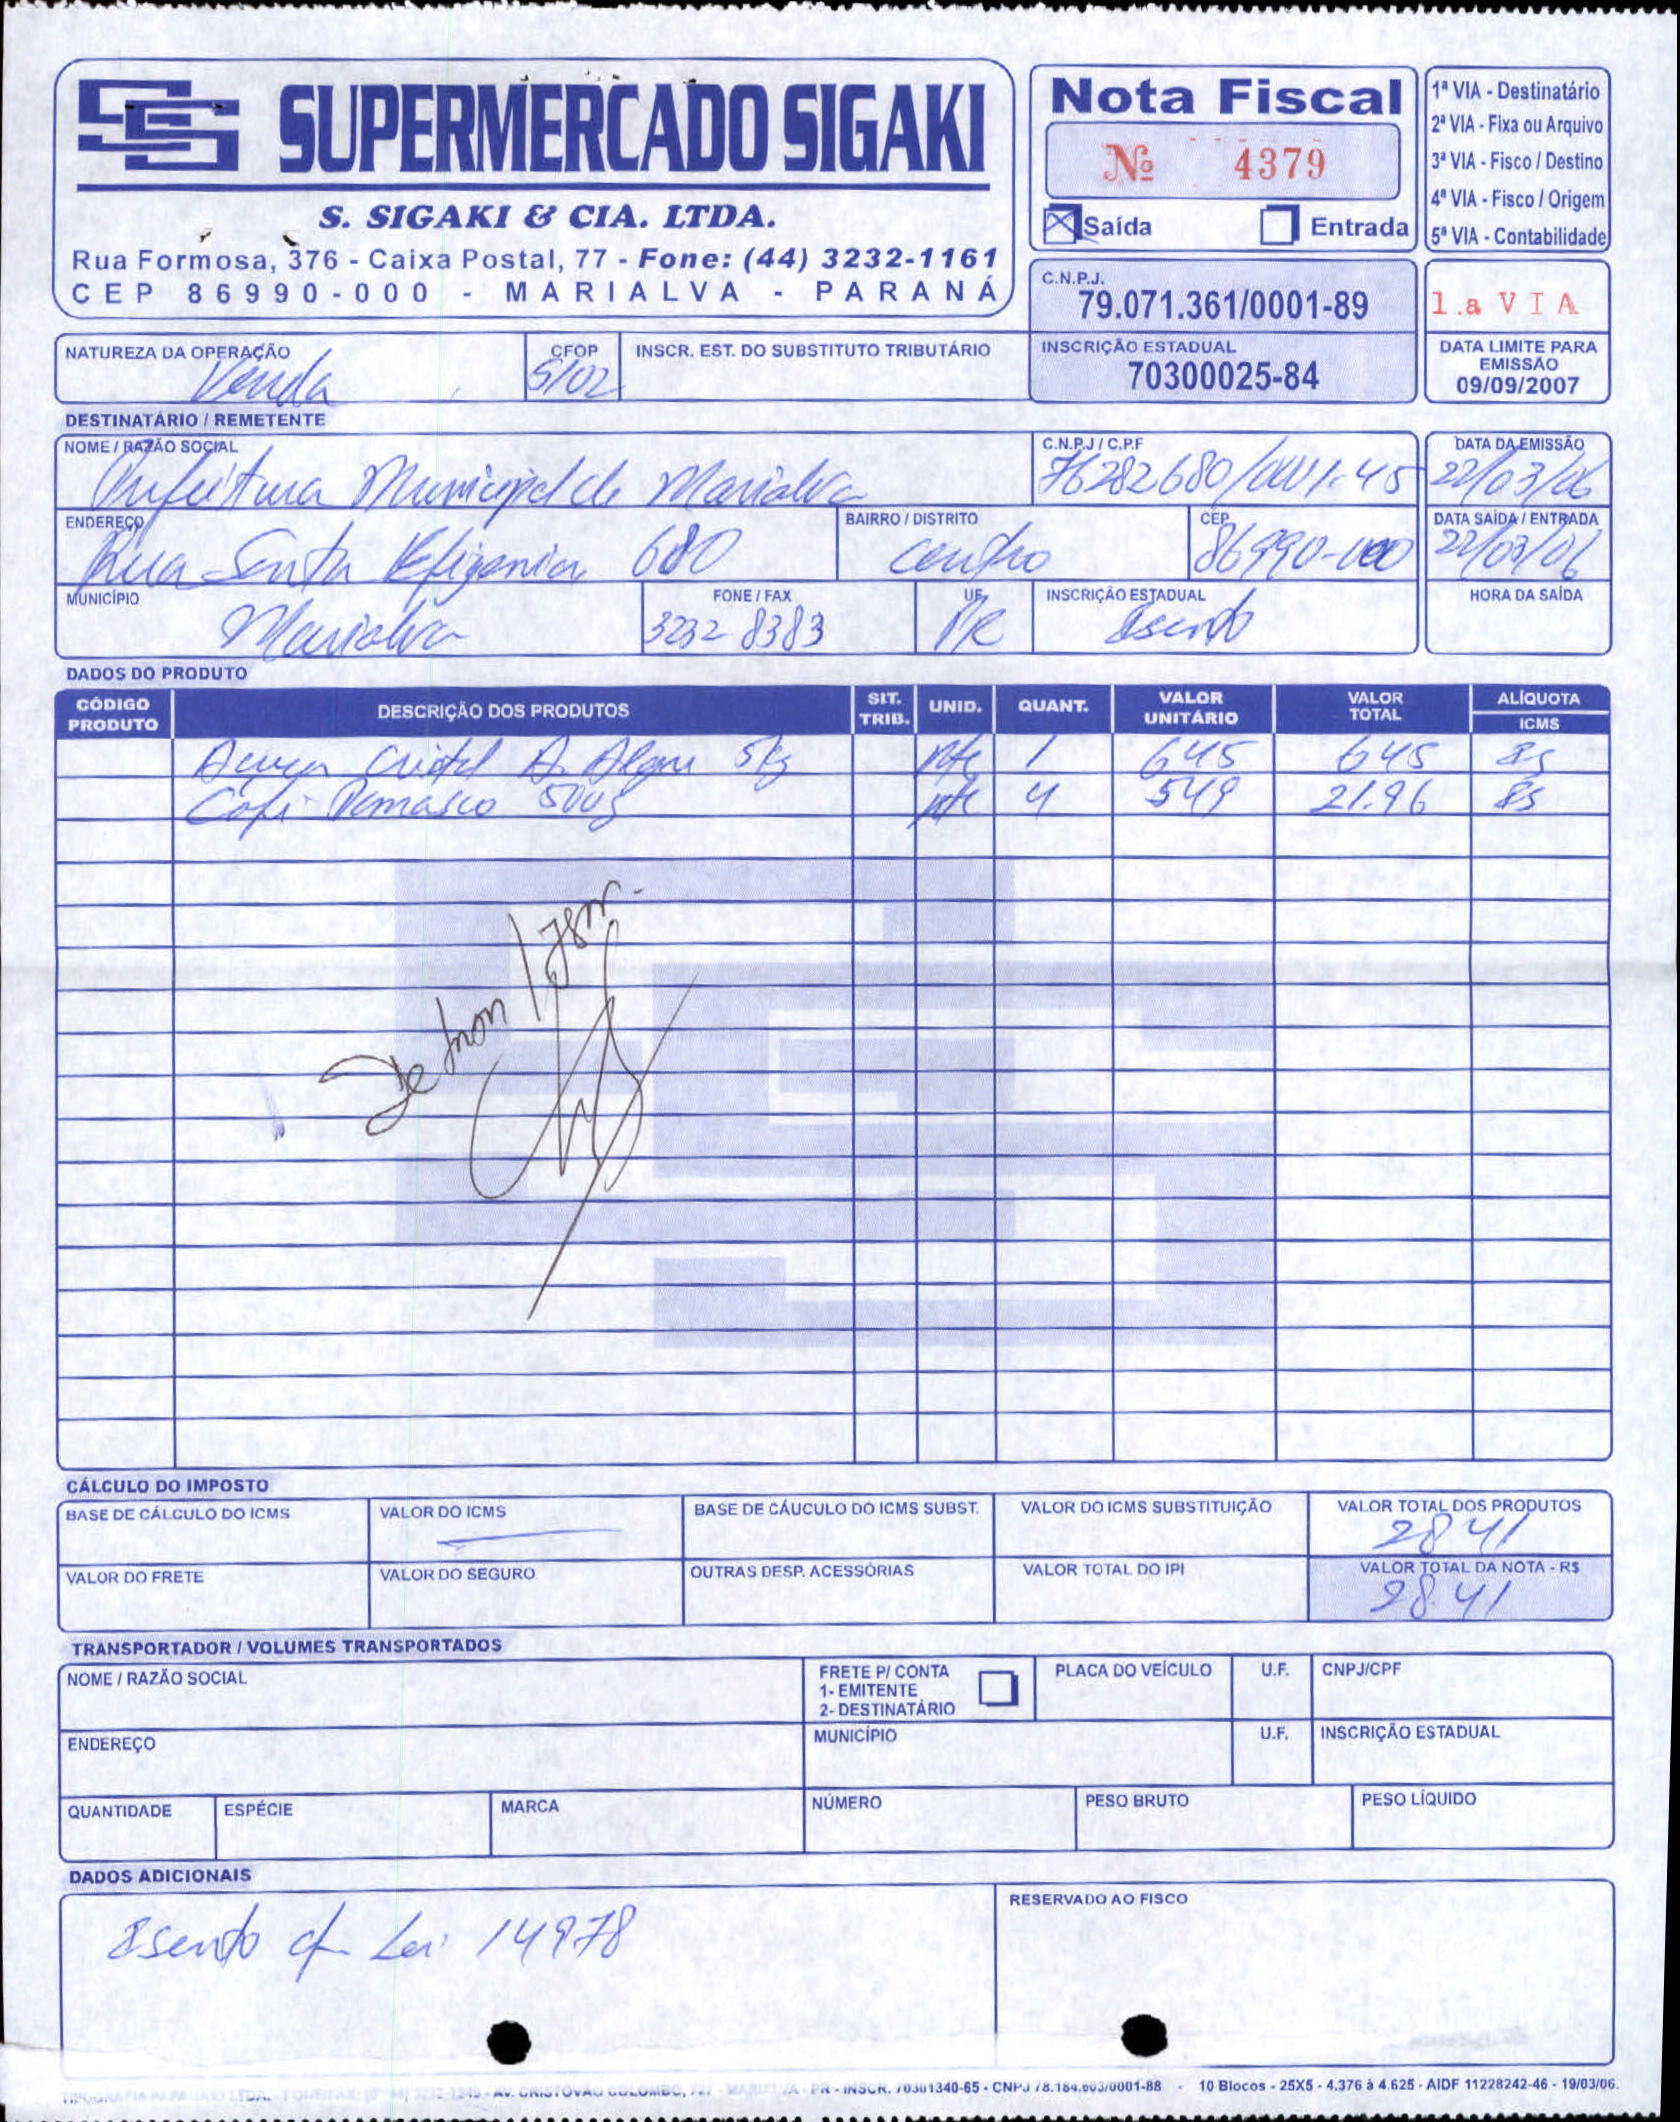 SUPERMERCADO SIGAKI
S. SIGAKI & CIA. LTDA.
Rua Formosa, 376 - Caixa Postal, 77 - Fone: (44) 3232-1161
CEP 86990-000 - MARIALVA - PARANÁ
Nota Fiscal
Nº 4379
Saída Entrada
1ª VIA - Destinatário
2ª VIA - Fixa ou Arquivo
3ª VIA - Fisco / Destino
4ª VIA - Fisco / Origem
5ª VIA - Contabilidade
C.N.P.J.
79.071.361/0001-89
1.a VIA
NATUREZA DA OPERAÇÃO
Venda
CFOP
5102
INSCR. EST. DO SUBSTITUTO TRIBUTÁRIO
INSCRIÇÃO ESTADUAL
70300025-84
DATA LIMITE PARA
EMISSÃO
09/09/2007
DESTINATÁRIO / REMETENTE
NOME / RAZÃO SOCIAL
Prefeitura Municipal de Marialva
C.N.P.J / C.P.F
76282680/0001-45
DATA DA EMISSÃO
22/03/06
ENDEREÇO
Rua Santa Efigenia 680
BAIRRO / DISTRITO
Centro
CEP
86990-000
DATA SAÍDA / ENTRADA
22/03/06
MUNICÍPIO
Marialva
FONE / FAX
3232 8383
UF
PR
INSCRIÇÃO ESTADUAL
Isento
HORA DA SAÍDA
DADOS DO PRODUTO
CÓDIGO PRODUTO DESCRIÇÃO DOS PRODUTOS SIT. TRIB. UNID. QUANT. VALOR UNITÁRIO VALOR TOTAL ALÍQUOTA ICMS
Açucar Cristal A. Alegre 5kg pte 1 645 645 Is
Café Damasco 500g pte 4 549 21.96 Is
CÁLCULO DO IMPOSTO
BASE DE CÁLCULO DO ICMS VALOR DO ICMS BASE DE CÁUCULO DO ICMS SUBST. VALOR DO ICMS SUBSTITUIÇÃO VALOR TOTAL DOS PRODUTOS
28 41
VALOR DO FRETE VALOR DO SEGURO OUTRAS DESP. ACESSÓRIAS VALOR TOTAL DO IPI VALOR TOTAL DA NOTA - R$
28.41
TRANSPORTADOR / VOLUMES TRANSPORTADOS
NOME / RAZÃO SOCIAL
FRETE P/ CONTA
1- EMITENTE
2- DESTINATÁRIO
PLACA DO VEÍCULO U.F. CNPJ/CPF
ENDEREÇO MUNICÍPIO U.F. INSCRIÇÃO ESTADUAL
QUANTIDADE ESPÉCIE MARCA NÚMERO PESO BRUTO PESO LÍQUIDO
DADOS ADICIONAIS
Isento cf Lei 14978
RESERVADO AO FISCO
AV. CRISTOVÃO COLOMBO, - MARIALVA - PR - INSCR. 70301340-65 - CNPJ 78.184.603/0001-88 - 10 Blocos - 25X5 - 4.376 à 4.625 - AIDF 11228242-46 - 19/03/06.